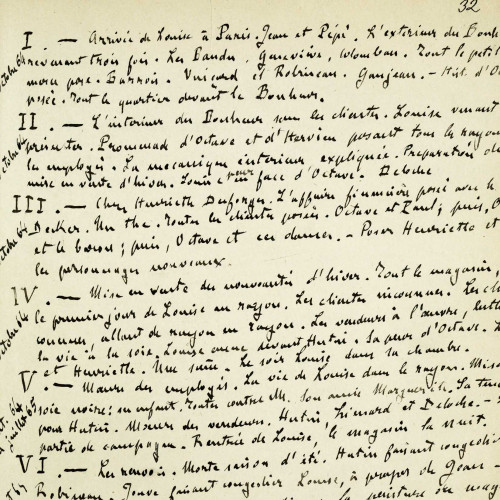 32
I. — Arrivée de Louise à Paris. Jean et Pépé. L'extérieur du Bonh
revenant trois fois. Les Baudu, Geneviève, Colomban. Tout le petit
posée. Tout le quartier devant le Bonheur.
II. — L'intérieur du Bonheur sans les clientes. Louise venant
présenter. Promenade d'Octave et d'Hervieu posant tous les rayons
les employés. La mécanique intérieure expliquée. Préparation de
mise en vente d'hiver. Louise en face d'Octave. Deloche
III. — Chez Henriette Desforges. L'affaire financière posée avec le
Decker. Un thé. Toutes les clientes posées. Octave et Paul; puis, O
et le baron; puis, Octave et ces dames. — Poser Henriette et
les personnages nouveaux.
IV. — Mise en vente des nouveautés d'hiver. Tout le magasin,
le premier jour de Louise au rayon. Les clientes inconnues. Les cl
connues, allant de rayon en rayon. Les vendeurs à l'œuvre, lutte
la vie à la soie. Louise encore devant Hutin. Sa peur d'Octave. L
et Henriette. Une scène. Le soir Louise dans sa chambre.
V. — Mœurs des employés. La vie de Louise dans le rayon. Misè
soie noire; un enfant. Toutes contre elle. Son amie Marguerite. Sa
pour Hutin. Mœurs des vendeurs. Hutin, Liénard et Deloche. —
partie de campagne. Rentrée de Louise, le magasin la nuit.
VI. — Les renvois. Morte saison d'été. Hutin faisant congédier
Robineau. Jouve faisant congédier Louise, à propos de Jean.